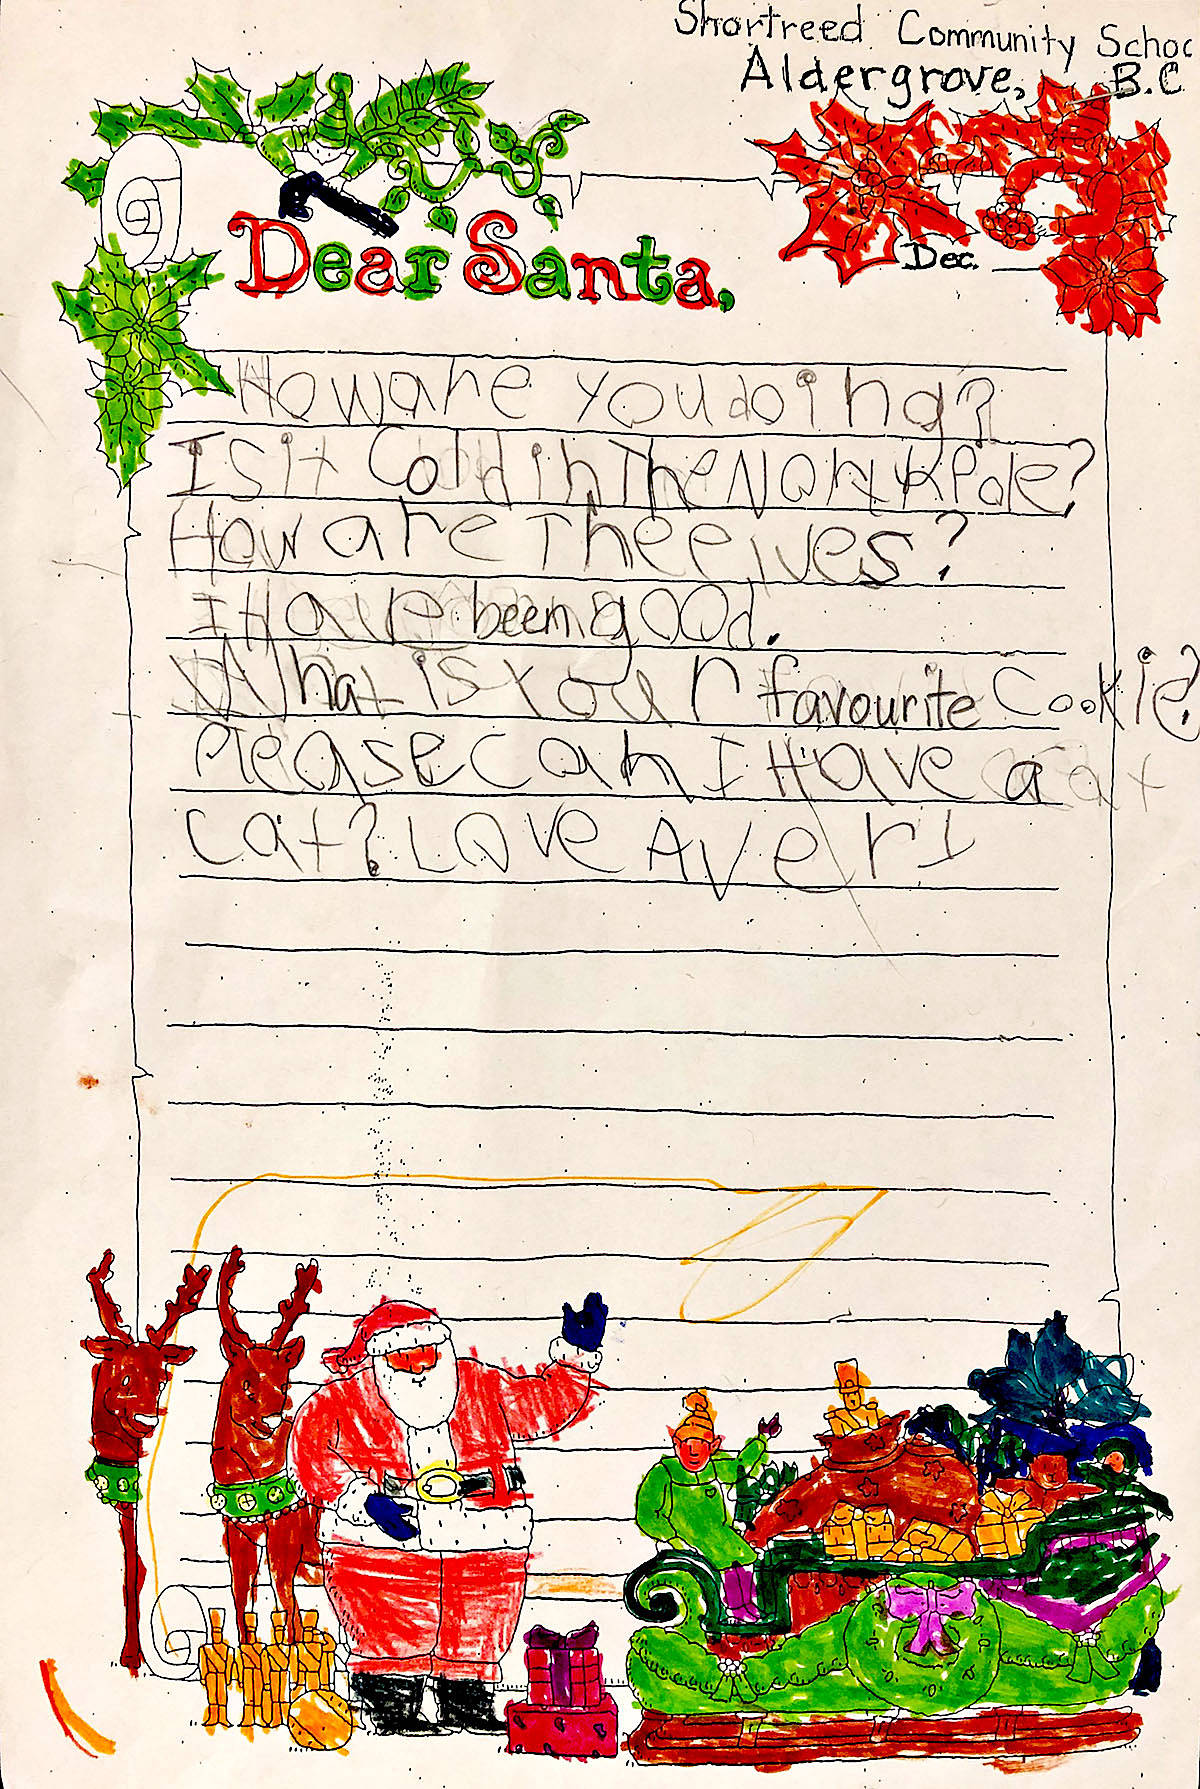 Shortreed Community Schoo
Aldergrove, B.C
Dear Santa,
Dec.
How are you doing?
Is it Cold in The North Pole?
How are The elves?
I Have been good.
What is Your favourite Cookie?
Please Can I Have a
cat? Love Averi